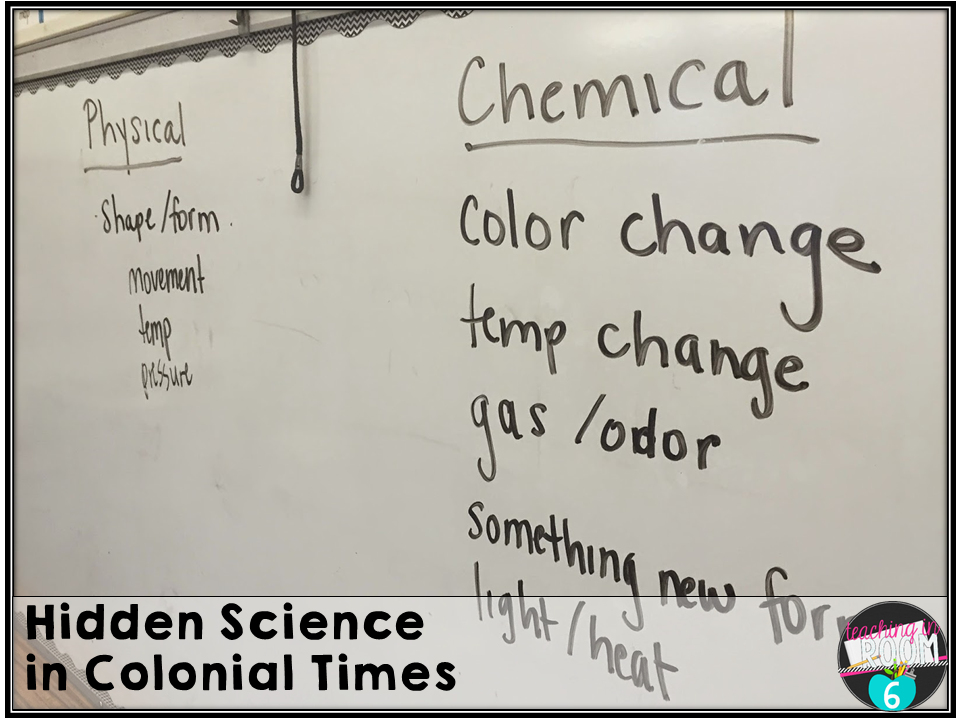 Physical
Shape/form
movement
temp
pressure
Chemical
Color change
temp change
gas/odor
something new
light/heat
Hidden Science
in Colonial Times
teaching in
ROOM
6